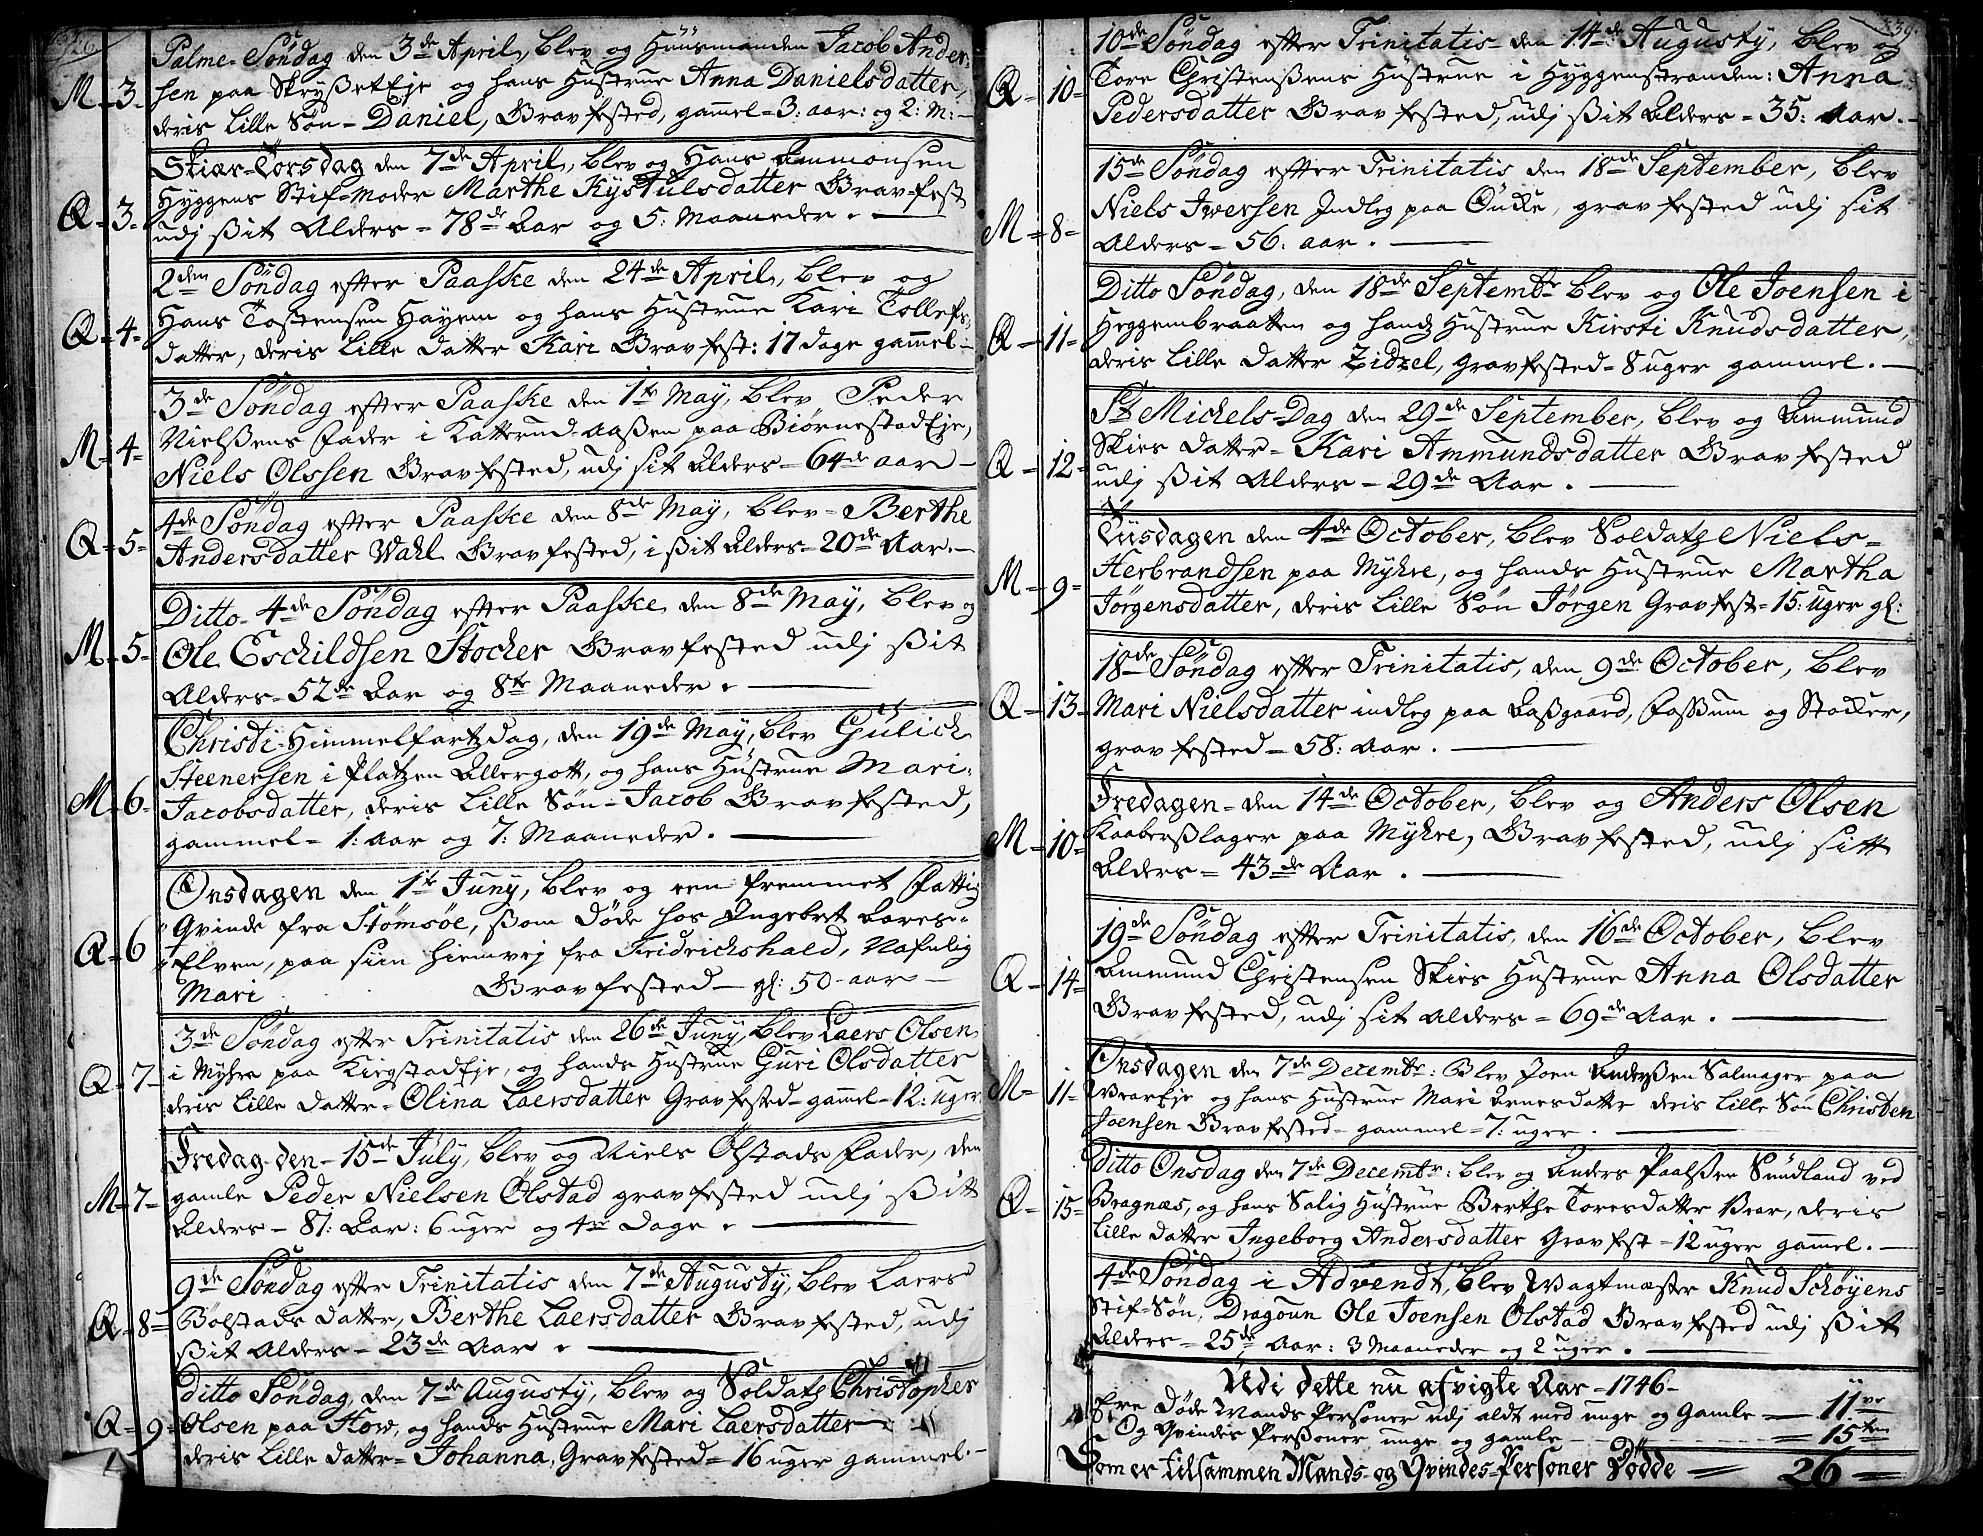 Palme-Søndag den 3de April, blev og Huusmanden Jacob Ander-
M-3- sen paa SkrÿßetEje og hans Hustrue Anna Danielsdatter,
deris Lille Søn-Daniel, Gravfested, gammel-3: aar: og 2: M:-
Skiær-Torsdag den 7de April, blev og Hans Ammonsen
Q-3- Hyggens Stif-Moder Marthe Kystulsdatter Gravfest
udj ßit Alders-78de Aar og 5: Maaneder.
2den Søndag efter Paaske den 24de April, blev og
Q-4- Hans Tostensen Hayem og hans Hustrue Kari Tollefs-
datter, deris Lille datter Kari Gravfest: 17 dage gammel-
3de Søndag efter Paaske den 1te May, blev Peder
M-4- Nielßens Fader i Katterud-aaßen paa BiørnestadEje,
Niels Olssen Gravfested, udj sit Alders-64de aar-
4de Søndag efter Paaske den 8de May, blev-Berthe
Q-5- Andersdatter Wahl Gravfested, i ßit Alders-20de Aar.-
Ditto-4de Søndag efter Paaske den 8de May, blev og
M-5- Ole Eschildsen Stocker Gravfested udj ßit
Alders-52de Aar og 8te Maaneder.
Christi-Himmelfartz Dag, den 19de May, blev Gulich
Steenersen i Platzen Allergott, og hans Hustrue Mari-
M-6- Jacobsdatter, deris Lille Søn-Jacob Gravfested,
gammel-1: aar og 7: Maaneder.
Onsdagen den 1te Juny, blev og een fremmet Fattig
Qvinde fra Stømsøe, ßom døde hos Engebret
Q-6 Elven, paa siin hiemvej fra Fridrichshald, Nafnlig
Mari Gravfested- gl: 50-aar-
3de Søndag efter Trinitatis den 26de Juny, blev Laers Olsen
Q-7- i Myhre paa KirgstadEje, og hands Hustrue Guri Olsdatter
deris Lille datter-Olina Laersdatter Gravfested-gammel-12: uger
Fredag-den-15de July, blev og Niels Olstads Fader, den
M-7- gamle Peder Nielsen Ølstad gravfested udj ßit
Alders-81: Aar: 6 uger og 4re Dage.
9de Søndag efter Trinitatis den 7de Augusty, blev Laers
Q-8- Bølstads datter, Berthe Laersdatter Gravfested, udj
ßit Alders-23de Aar.
Ditto Søndag, den 7de Augusty, blev og Soldatz Christopher
Q-9- Olsen paa How, og hands Hustrue Mari Laersdatter
deris Lille datter-Johanna, Gravfested-16 uger gammel.-
339.
10de Søndag efter Trinitatis-den 14de Augusty, blev og
Q-10- Tore Christenßens Hustrue i Hyggenstranden: Anna
Pedersdatter Gravfested, udj ßit Alders-35: Aar.-
15de Søndag efter Trinitatis den 18de September, blev
M-8- Niels Iwersen Indleg paa Øucke, gravfested udj sit
Alders-56: aar.
Ditto Søndag, den 18de Septembr blev og Ole Joensen i
Q-11- Heggembraatten og handz Hustrue Kirsti Knudsdatter,
deris Lille datter Zidzel, gravfested-8 uger gammel.-
St Michels-Dag den 29de September, blev og Ammund
Q-12- Skies datter-Kari Ammundsdatter Gravfested
udj ßit Alders-29de Aar.
Tiisdagen den 4de October, blev Soldatz Niels-
M-9- Herbrandsen paa Myhre, og hands Hustrue Martha
Jørgensdatter, deris Lille Søn Jørgen Gravfest-15: uger gl:
18de Søndag efter Trinitatis, den 9de October, blev
Q-13- Mari Nielsdatter indleg paa Aaßgaard, Foßsum og Stocker,
gravfested-58: Aar.
Fredagen-den 14de October, blev og Anders Olsen
M-10- Kaaberßlager paa Myhre, Gravfested, udj sitt
Alders-43de Aar.
19de Søndag efter Trinitatis, den 16de October, blev
Q-14- Ammund Christensen Skies Hustrue Anna Olsdatter
Gravfested, udj sit Alders-69de Aar.
Onsdagen den 7de Decembr: Blev Joen Anderßen Salmager paa
M-11- WearEje og hans Hustrue Mari Arnesdatter deris Lille Søn Christen
Joensen Gravfested-gammel-7: uger.
Ditto Onsdag den 7de Decembr: blev og Anders Paalßen Sundland ved
Q-15- Bragnæs, og hans Salig Hustrue Berthe Toresdatter Wear, deris
Lille datter Ingeborg Andersdatter Gravfest-12 uger gammel.-
4de Søndag i Advendt, blev Wagtmæster Knud Schøyens
Stif-Søn, Dragoun Ole Joensen Ølstad Gravfested udj ßit
Alders-25de Aar: 3 Maaneder og 2 uger.
Udi dette nu afvigte Aar-1746-
Ere Døde Mands Personer udj aldt med unge og Gamle-11ve
Og Qvindes Perßoner unge og gamle-15ten
Som er tilsammen Mands-og Qvindes-Personer Dødde-26-